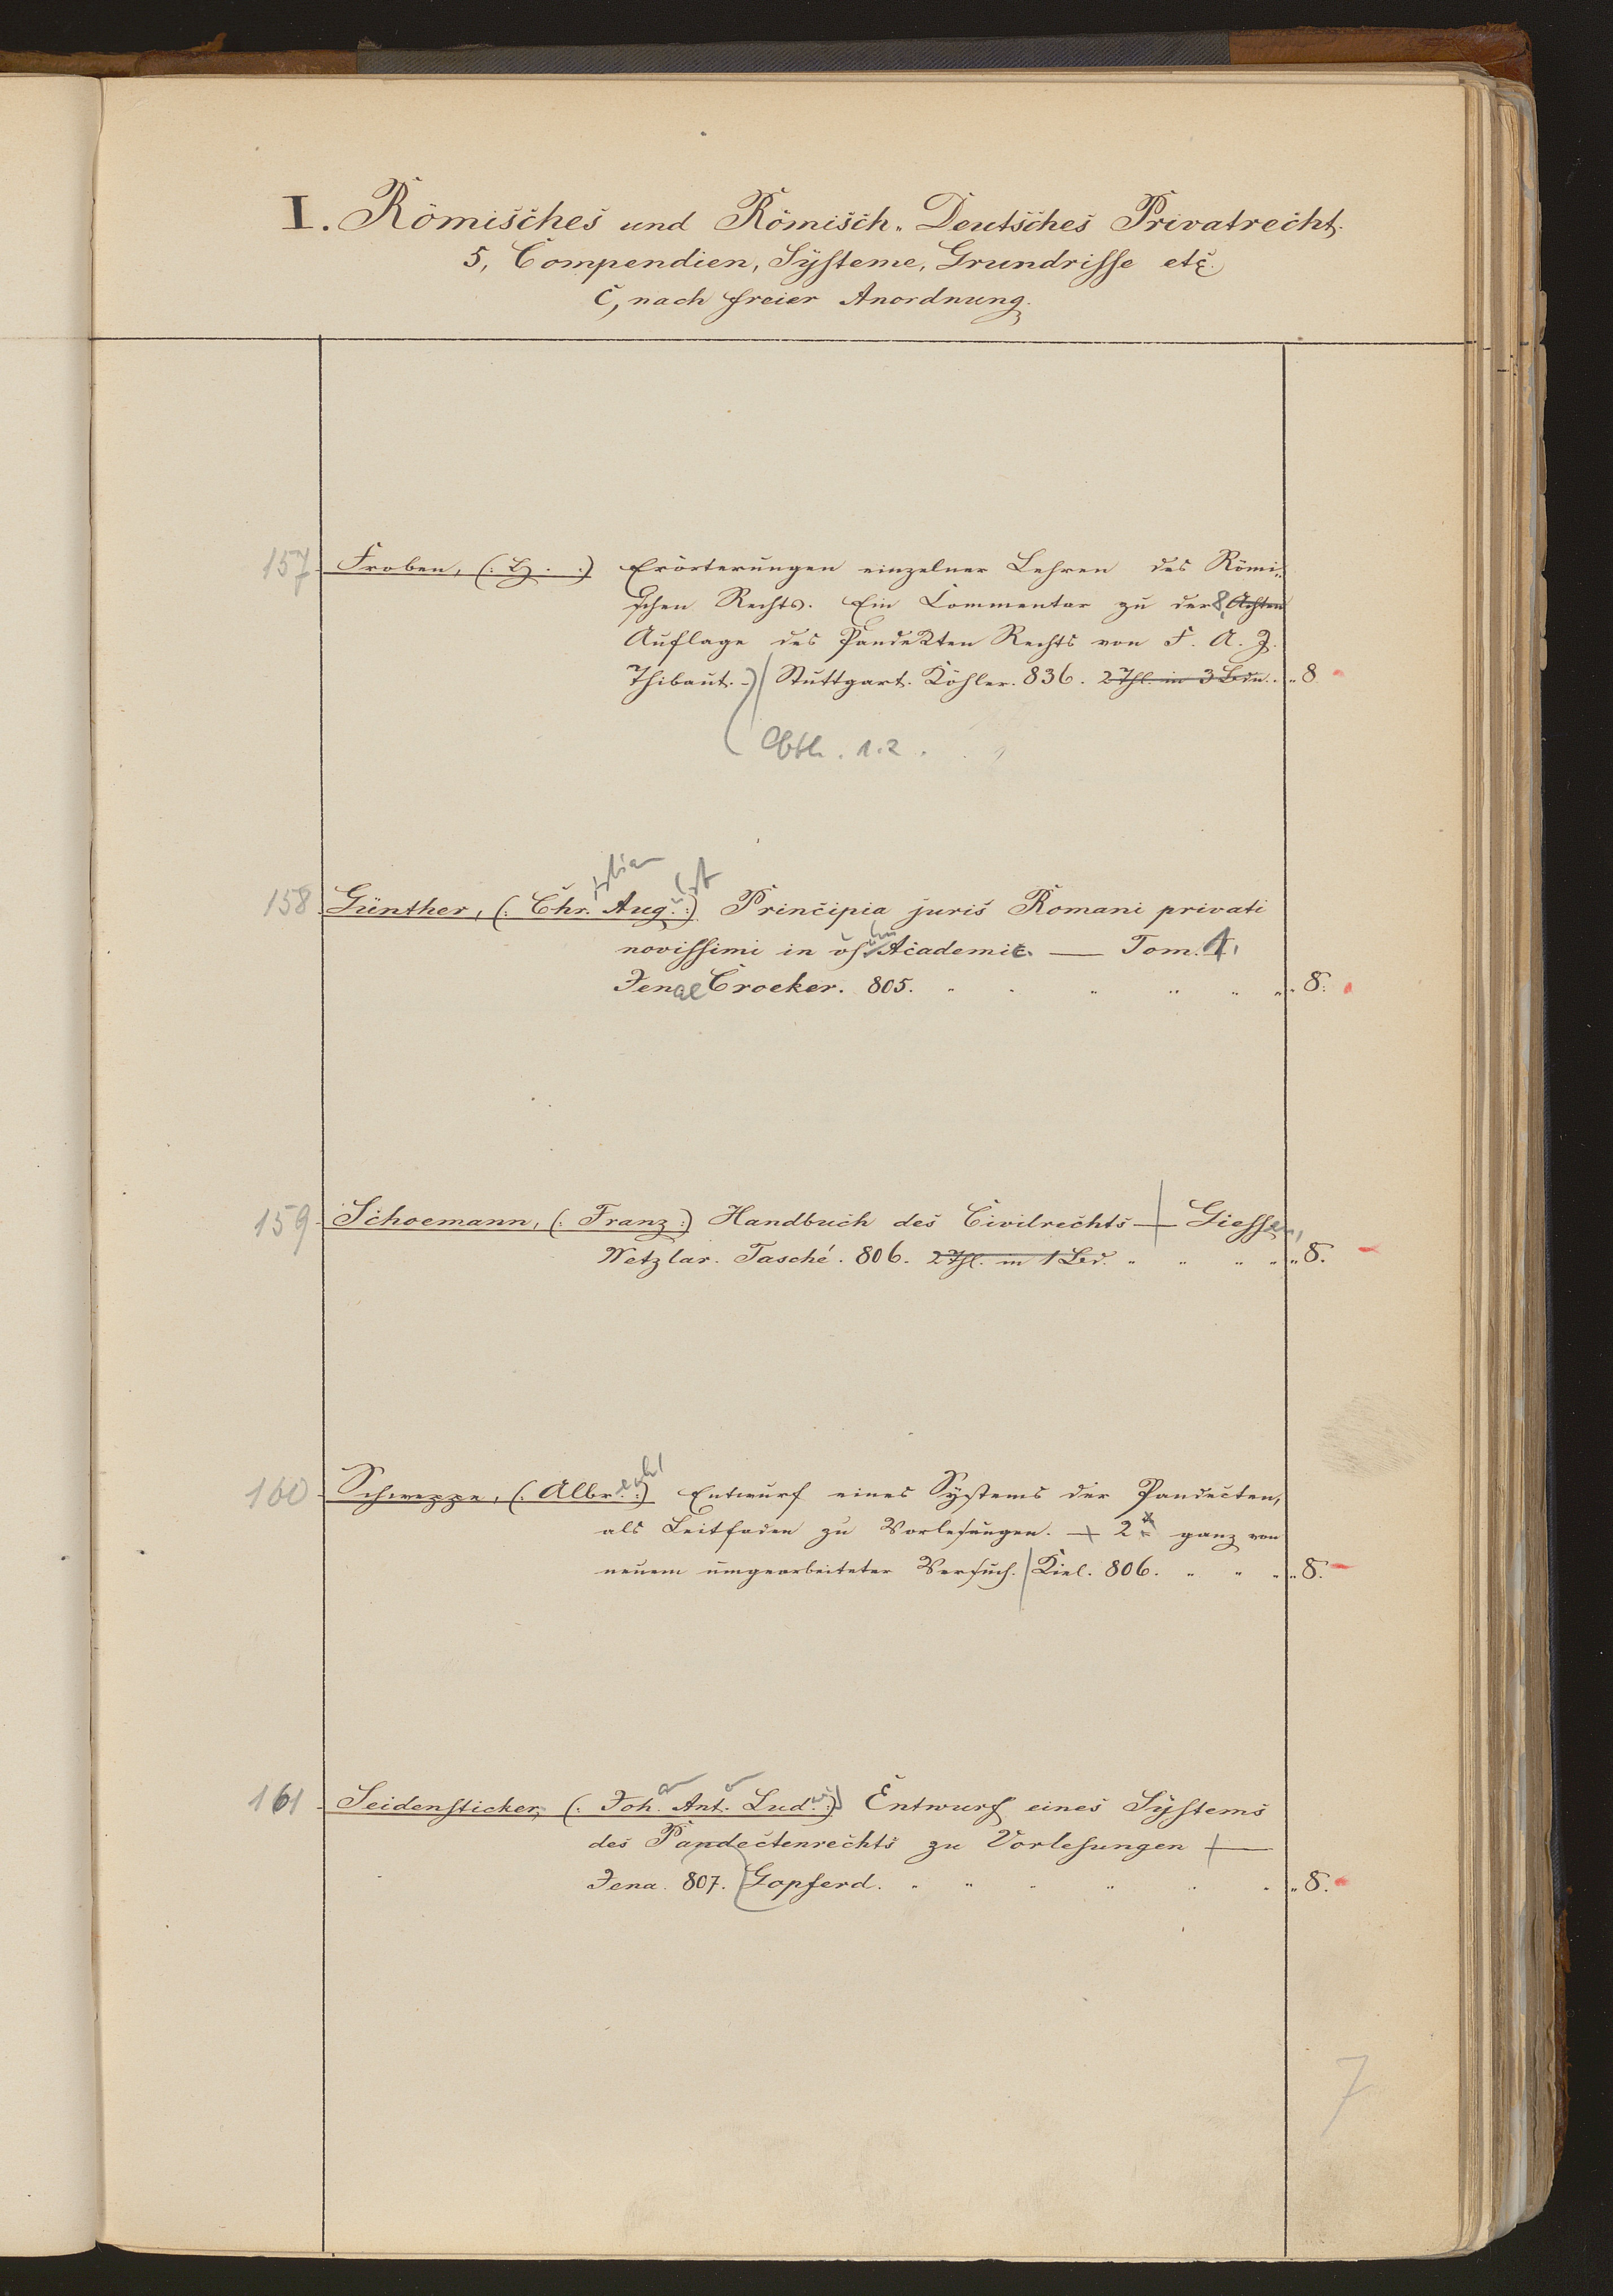 I. Römisches und Römisch-Deutsches Privatrecht.
5, Compendien, Systeme, Grundrisse etc.
c, nach freier Anordnung.
157 Froben, (: :) Erörterungen einzelner Lehren des Römi-
schen Rechts. Ein Commentar zu der 8. Achten
Auflage des Pandekten Rechts von F. A. J.
Thibaut. Stuttgart. Köhler. 836. 2 Thl. in 3 Bdn. 8
Abth. 1. 2.
158 Günther, (: Christian August :) Principia juris Romani privati
novissimi in Academic. — Tom. 1.
Jenae Croeker. 805. 8.
159 Schoemann, (: Franz :) Handbuch des Civilrechts — Giessen,
Wetzlar. Tasché. 806. 2 Thl. in 1 Bd. 8.
160 Schweppe, (: Albrecht :) Entwurf eines Systems der Pandecten,
als Leitfaden zu Vorlesungen. — 2 ganz von
neuem umgearbeiteter Versuch. Kiel. 806. 8.
161 Seidensticker, (: Joh. Ant. Ludw. :) Entwurf eines Systems
des Pandectenrechts zu Vorlesungen —
Jena. 807. Gopferd. 8.
7